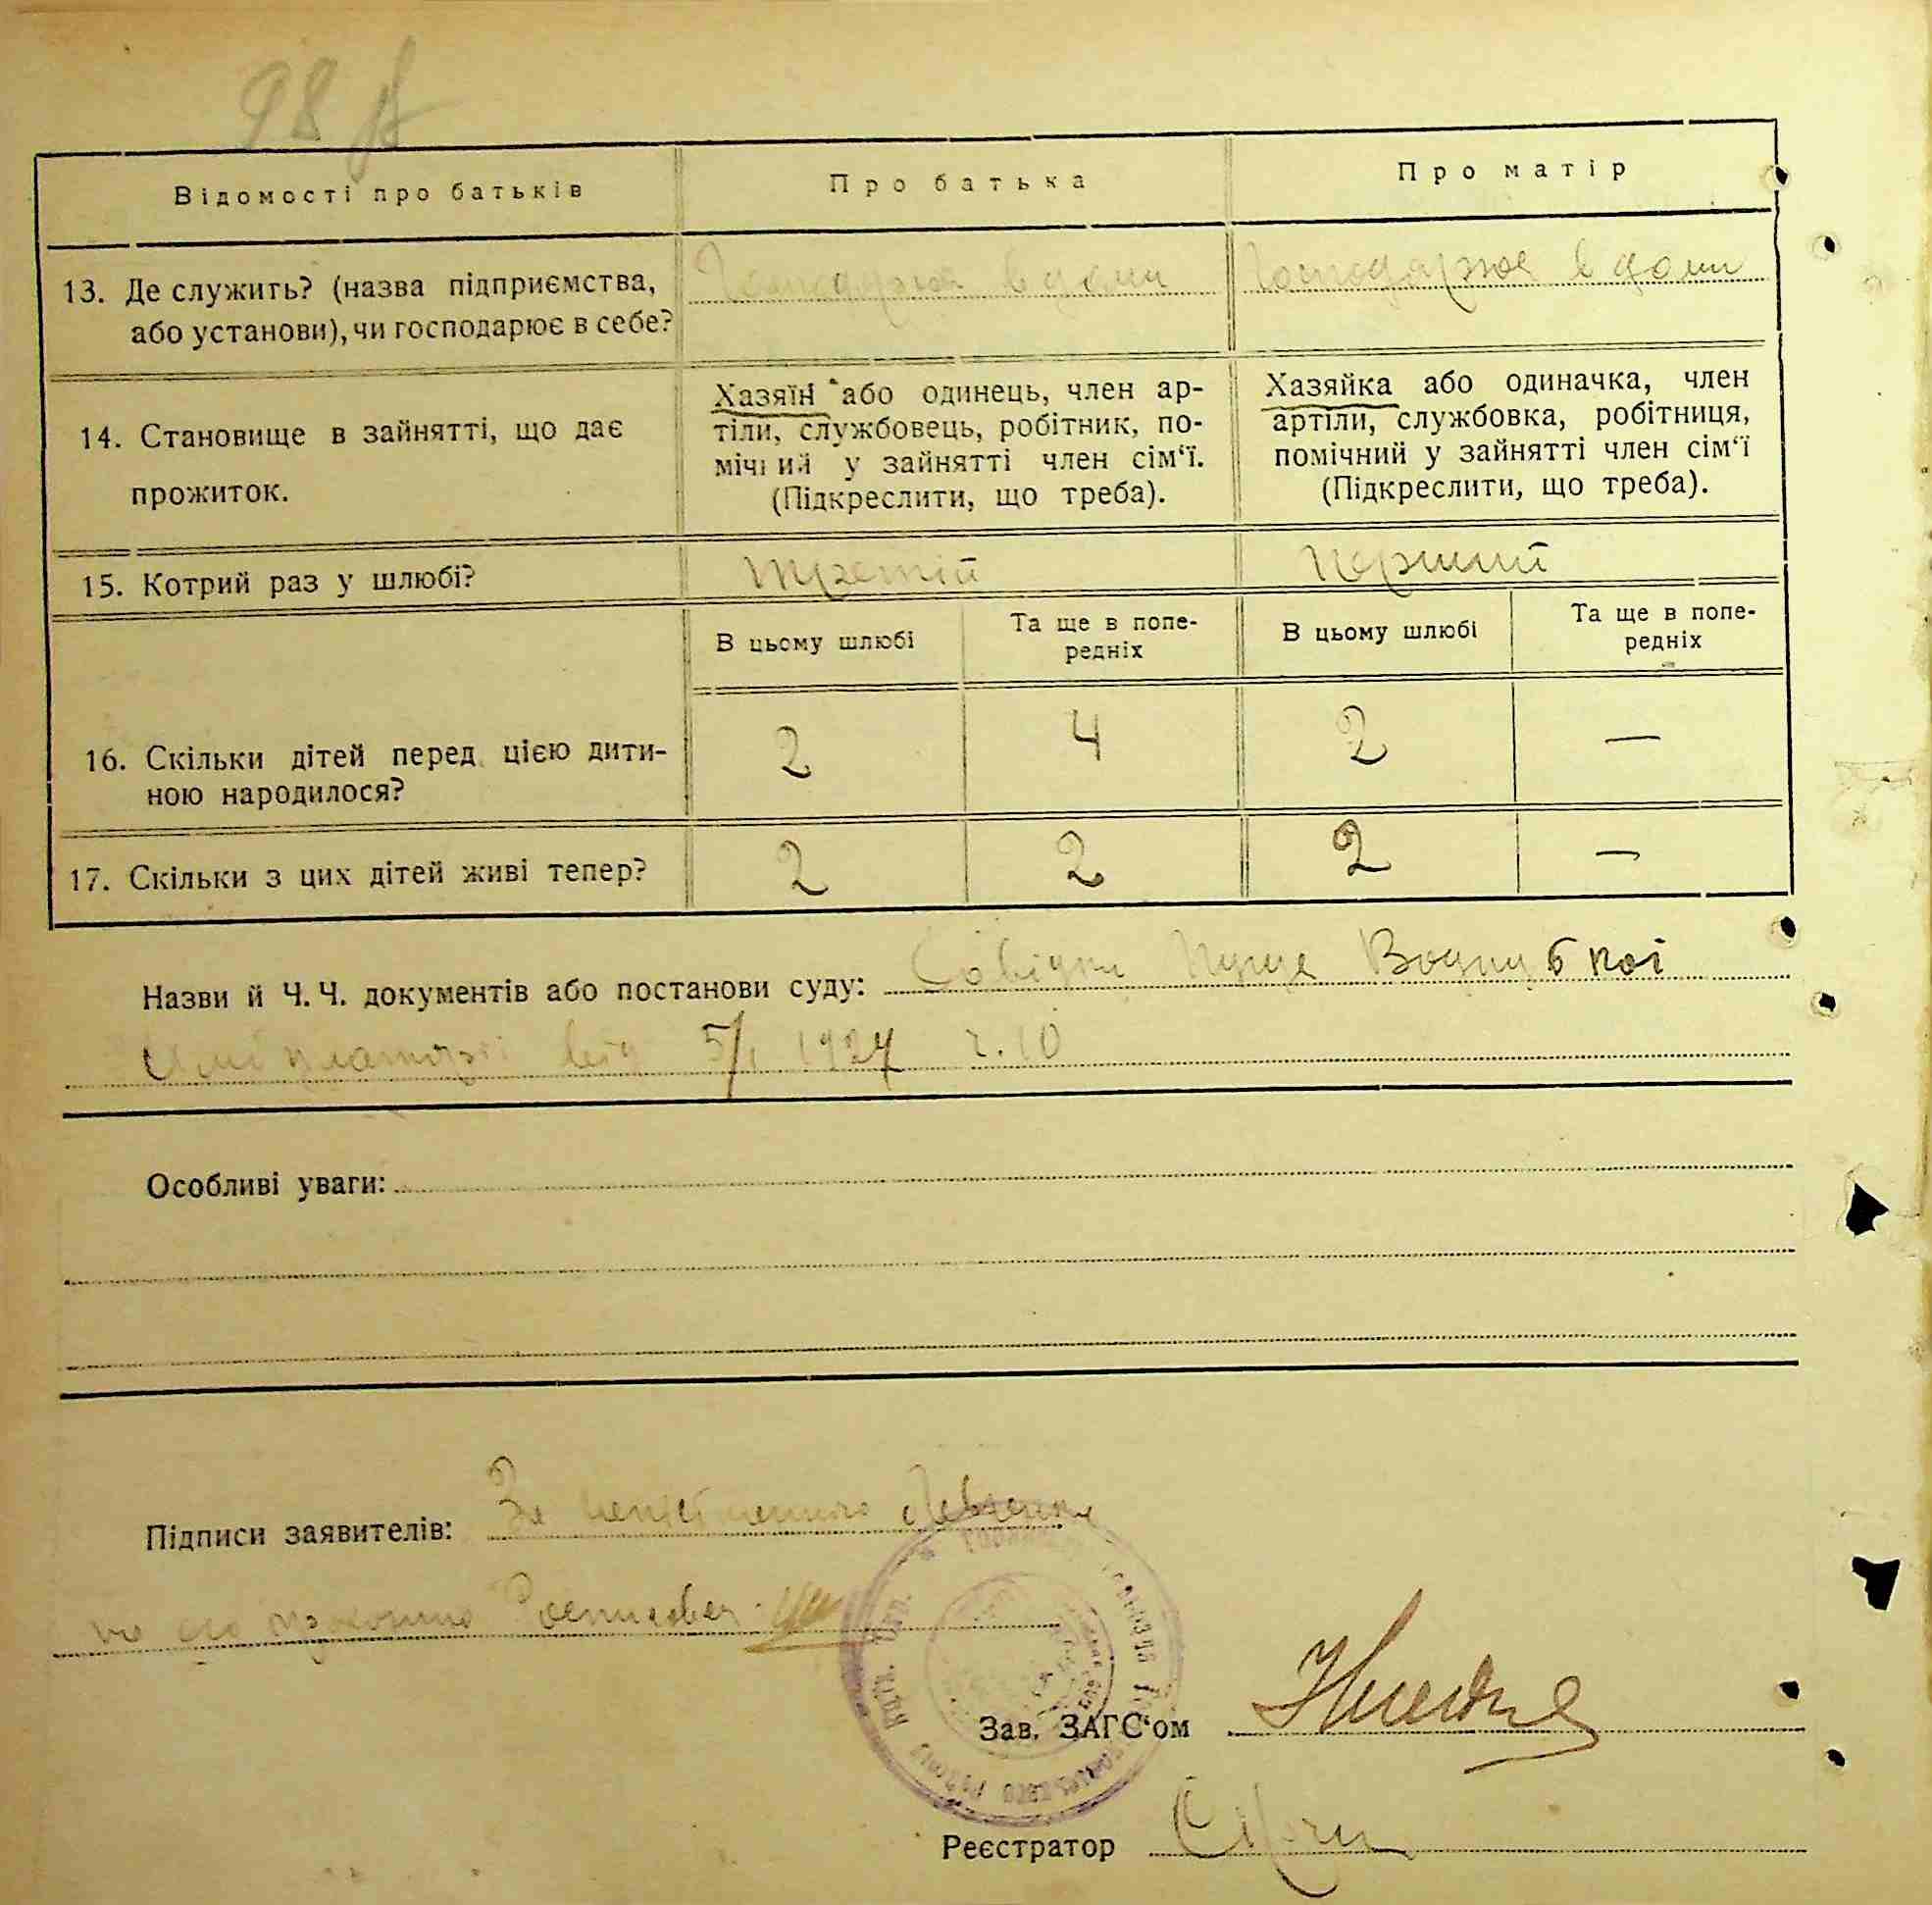 98
Відомості про батьків
Про батька
Про матір
13. Де служить? (назва підприємства,
або установи), чи господарює в себе?
Господарює в доми
Господарює в доми
14. Становище в зайнятті, що дає
прожиток.
Хазяїн або одинець, член ар-
тіли, службовець, робітник, по-
мічний у зайнятті член сім‘ї.
(Підкреслити, що треба).
Хазяйка або одиначка, член
артіли, службовка, робітниця,
помічний у зайнятті член сім‘ї
(Підкреслити, що треба).
15. Котрий раз у шлюбі?
третій
перший
В цьому шлюбі
Та ще в попе-
редніх
В цьому шлюбі
Та ще в попе-
редніх
16. Скільки дітей перед цією дити-
ною народилося?
2
4
2
—
17. Скільки з цих дітей живі тепер?
2
2
2
—
Назви й Ч. Ч. документів або постанови суду: Пуще
від 5/I 1927 ч. 10
Особливі уваги:
Підписи заявителів: За
по его Росписався
Зав. ЗАГС‘ом
Реєстратор